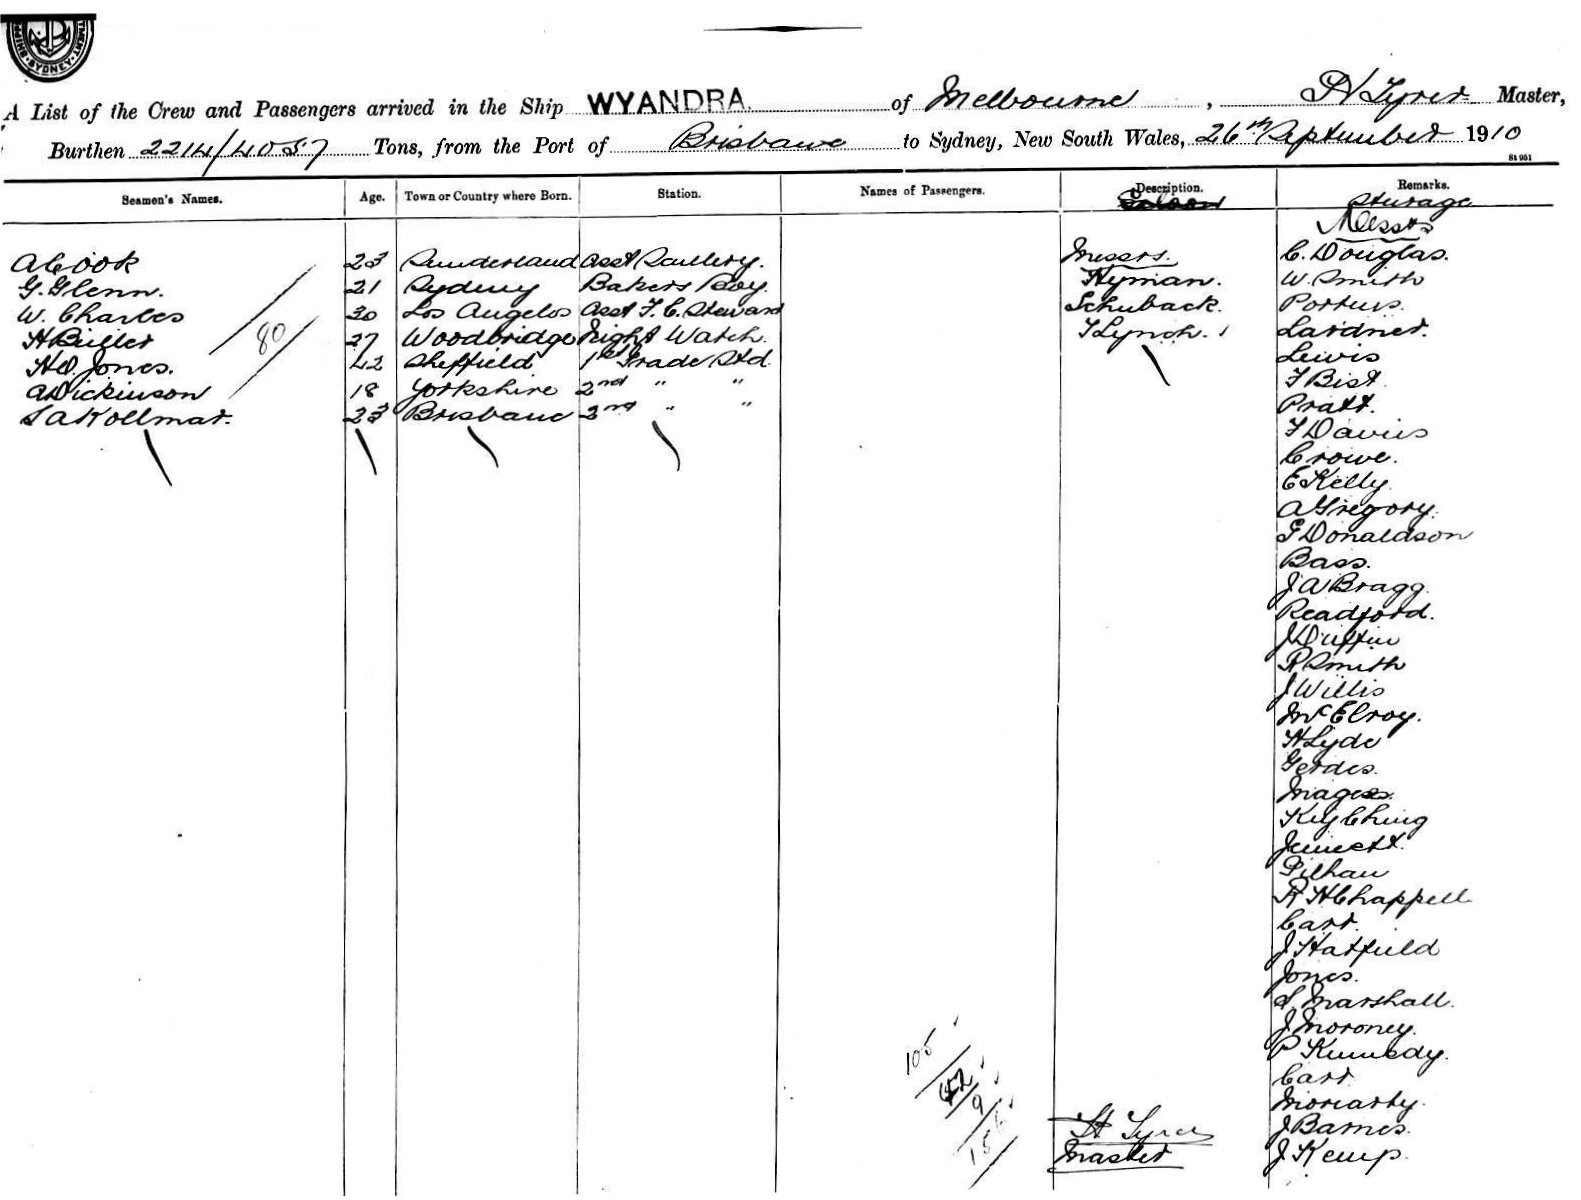 SYDNEY
A List of the Crew and Passengers arrived in the Ship WYANDRA of Melbourne, H Tyrer Master,
Burthen 2214/4057 Tons, from the Port of Brisbane to Sydney, New South Wales, 26th September 1910
Seamen's Names. Age. Town or Country where Born. Station. Names of Passengers. Description. Remarks.
Saloon Steerage
Messrs
A Cook 23 Sunderland Asst Scullery. Messrs. C. Douglas.
G. Glenn. 21 Sydney Bakers Boy. Hyman. W Smith
W. Charles 30 Los Angelos Asst F.C. Steward Schuback. Porteus.
H Butler 27 Woodbridge Night Watch. T Lynch. Lardner.
80
H.O. Jones. 42 Sheffield 1st Grade Std. Lewis
A Dickinson 18 Yorkshire 2nd " " F Bist.
S A Kollmar. 23 Brisbane 2nd " " Pratt.
F Davies
Crowe.
E Kelly
A Gregory.
G Donaldson
Bass.
J A Bragg.
Readford.
J Duffin
R Smith
J Willis
McElroy.
H Lyde
Gerdes.
Magess.
Key Ching
Jennett.
Pilhau
R H Chappell
Carr.
J Hatfield
Jones.
S. Marshall.
J Moroney.
P Kennedy.
105
42
Carr
9
Moriarty.
156
H Tyrer
J Barnes.
Master
J Kemp.